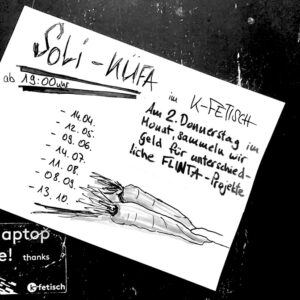 SOLI-KÜFA
ab 19:00 uhr
in K-FETISCH
Am 2. Donnerstag im
Monat, sammeln wir
Geld für unterschied-
liche FLINTA-Projekte
- 14.04.
- 12.05.
- 09.06.
- 14.07.
- 11.08.
- 08.09.
- 13.10.
aptop
e! thanks
k-fetisch